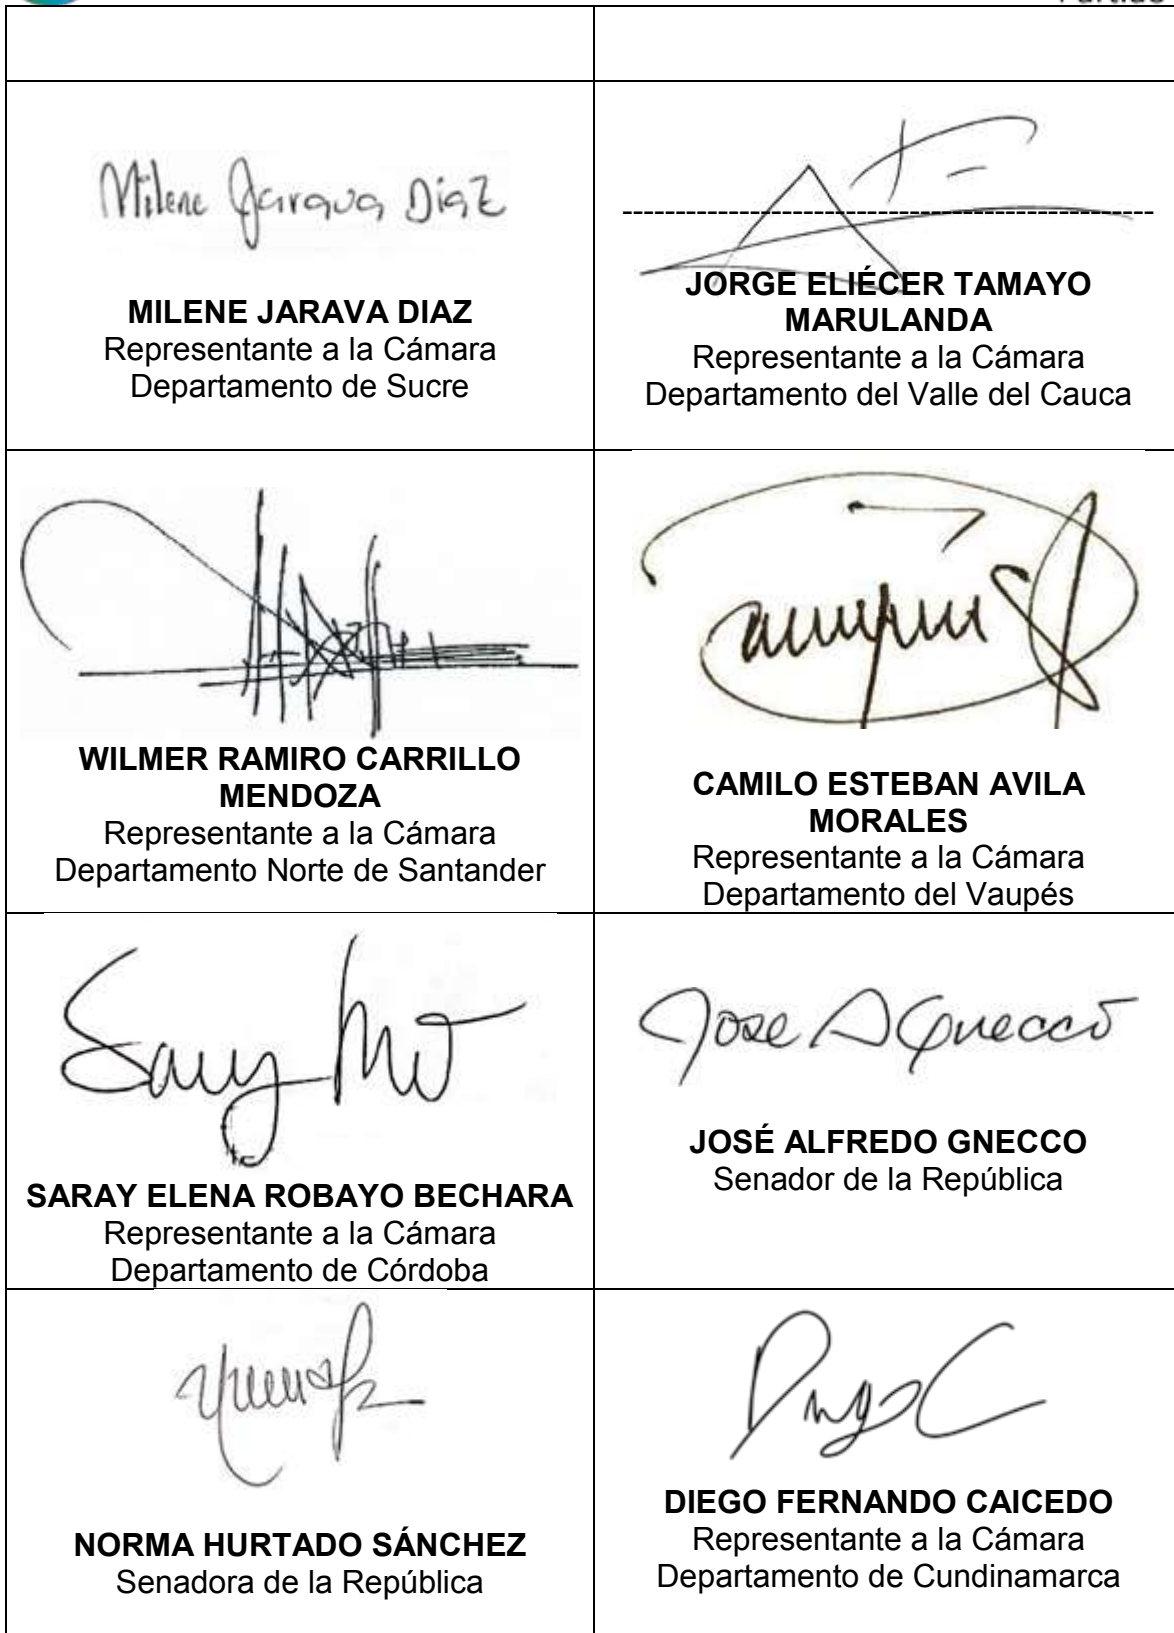 Milene Jarava Diaz
MILENE JARAVA DIAZ
Representante a la Cámara
Departamento de Sucre
JORGE ELIÉCER TAMAYO
MARULANDA
Representante a la Cámara
Departamento del Valle del Cauca
WILMER RAMIRO CARRILLO
MENDOZA
Representante a la Cámara
Departamento Norte de Santander
CAMILO ESTEBAN AVILA
MORALES
Representante a la Cámara
Departamento del Vaupés
SARAY ELENA ROBAYO BECHARA
Representante a la Cámara
Departamento de Córdoba
Jose A Gnecco
JOSÉ ALFREDO GNECCO
Senador de la República
NORMA HURTADO SÁNCHEZ
Senadora de la República
DIEGO FERNANDO CAICEDO
Representante a la Cámara
Departamento de Cundinamarca